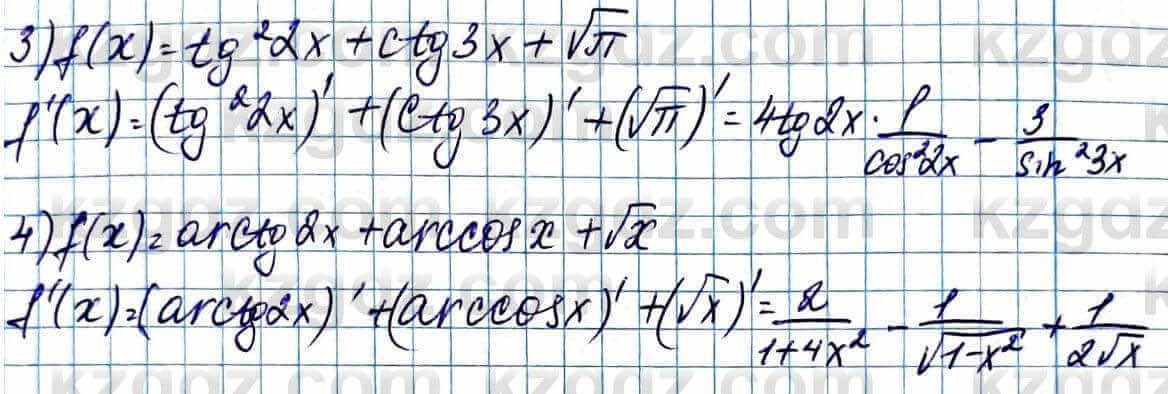 3) f(x) = tg²2x + ctg3x + √π
f'(x) = (tg²2x)' + (ctg3x)' + (√π)' = 4tg2x · 1/cos²2x - 3/sin²3x
4) f(x) = arctg2x + arccosx + √x
f'(x) = (arctg2x)' + (arccosx)' + (√x)' = 2/(1+4x²) - 1/√(1-x²) + 1/(2√x)